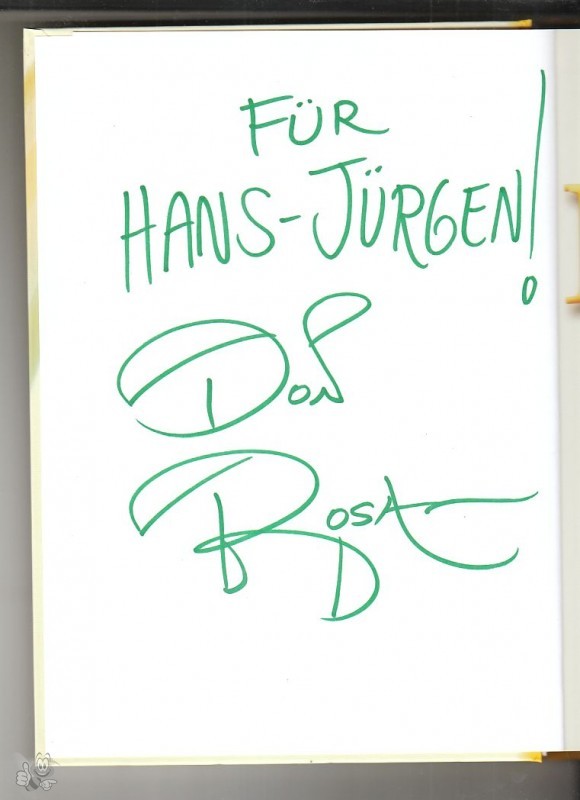 FÜR
HANS-JÜRGEN!
DON
ROSA